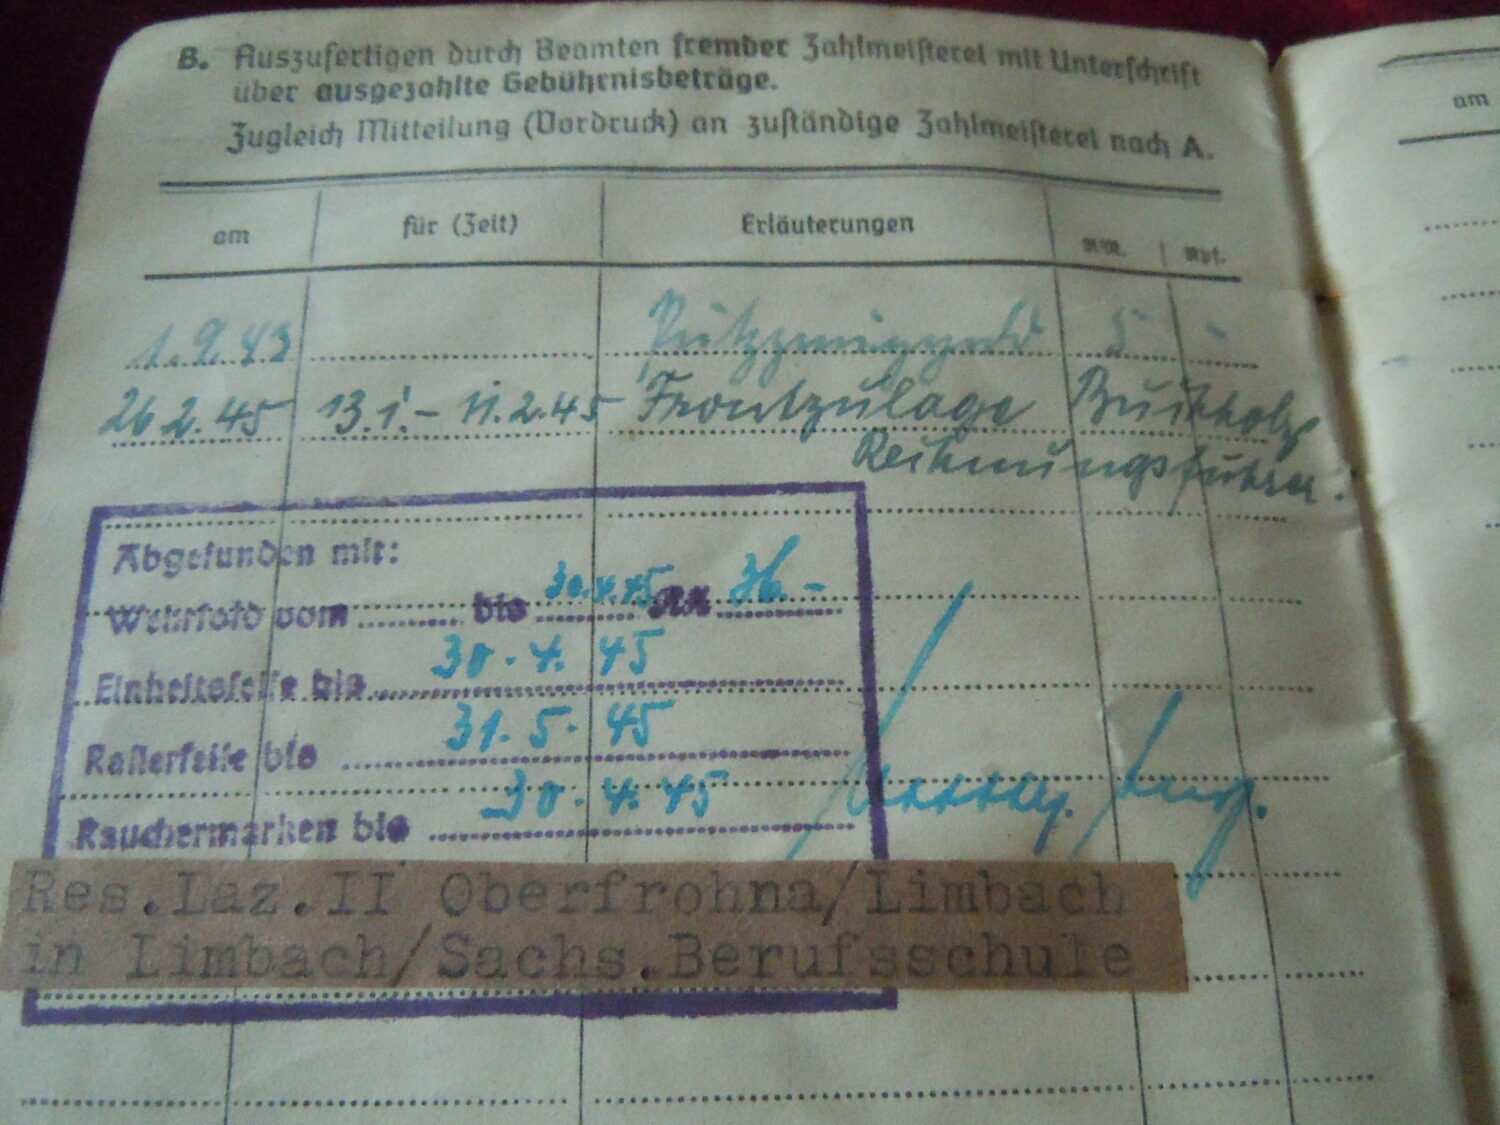 B. Auszufertigen durch Beamten fremder Zahlmeisterei mit Unterschrift
über ausgezahlte Gebührnisbeträge.
Zugleich Mitteilung (Vordruck) an zuständige Zahlmeisterei nach A.
am für (Zeit) Erläuterungen RM. Rpf.
am
1.9.43 5 -
26.2.45 13.1. - 11.2.45 Frontzulage Buchholz
Rechnungsführer.
Abgefunden mit:
Wehrsold vom bis 30.4.45 RM 36.-
Einheitsseife bis 30.4.45
Rasierseife bis 31.5.45
Rauchermarken bis 30.4.45
Res.Laz.II Oberfrohna/Limbach
in Limbach/Sachs.Berufsschule